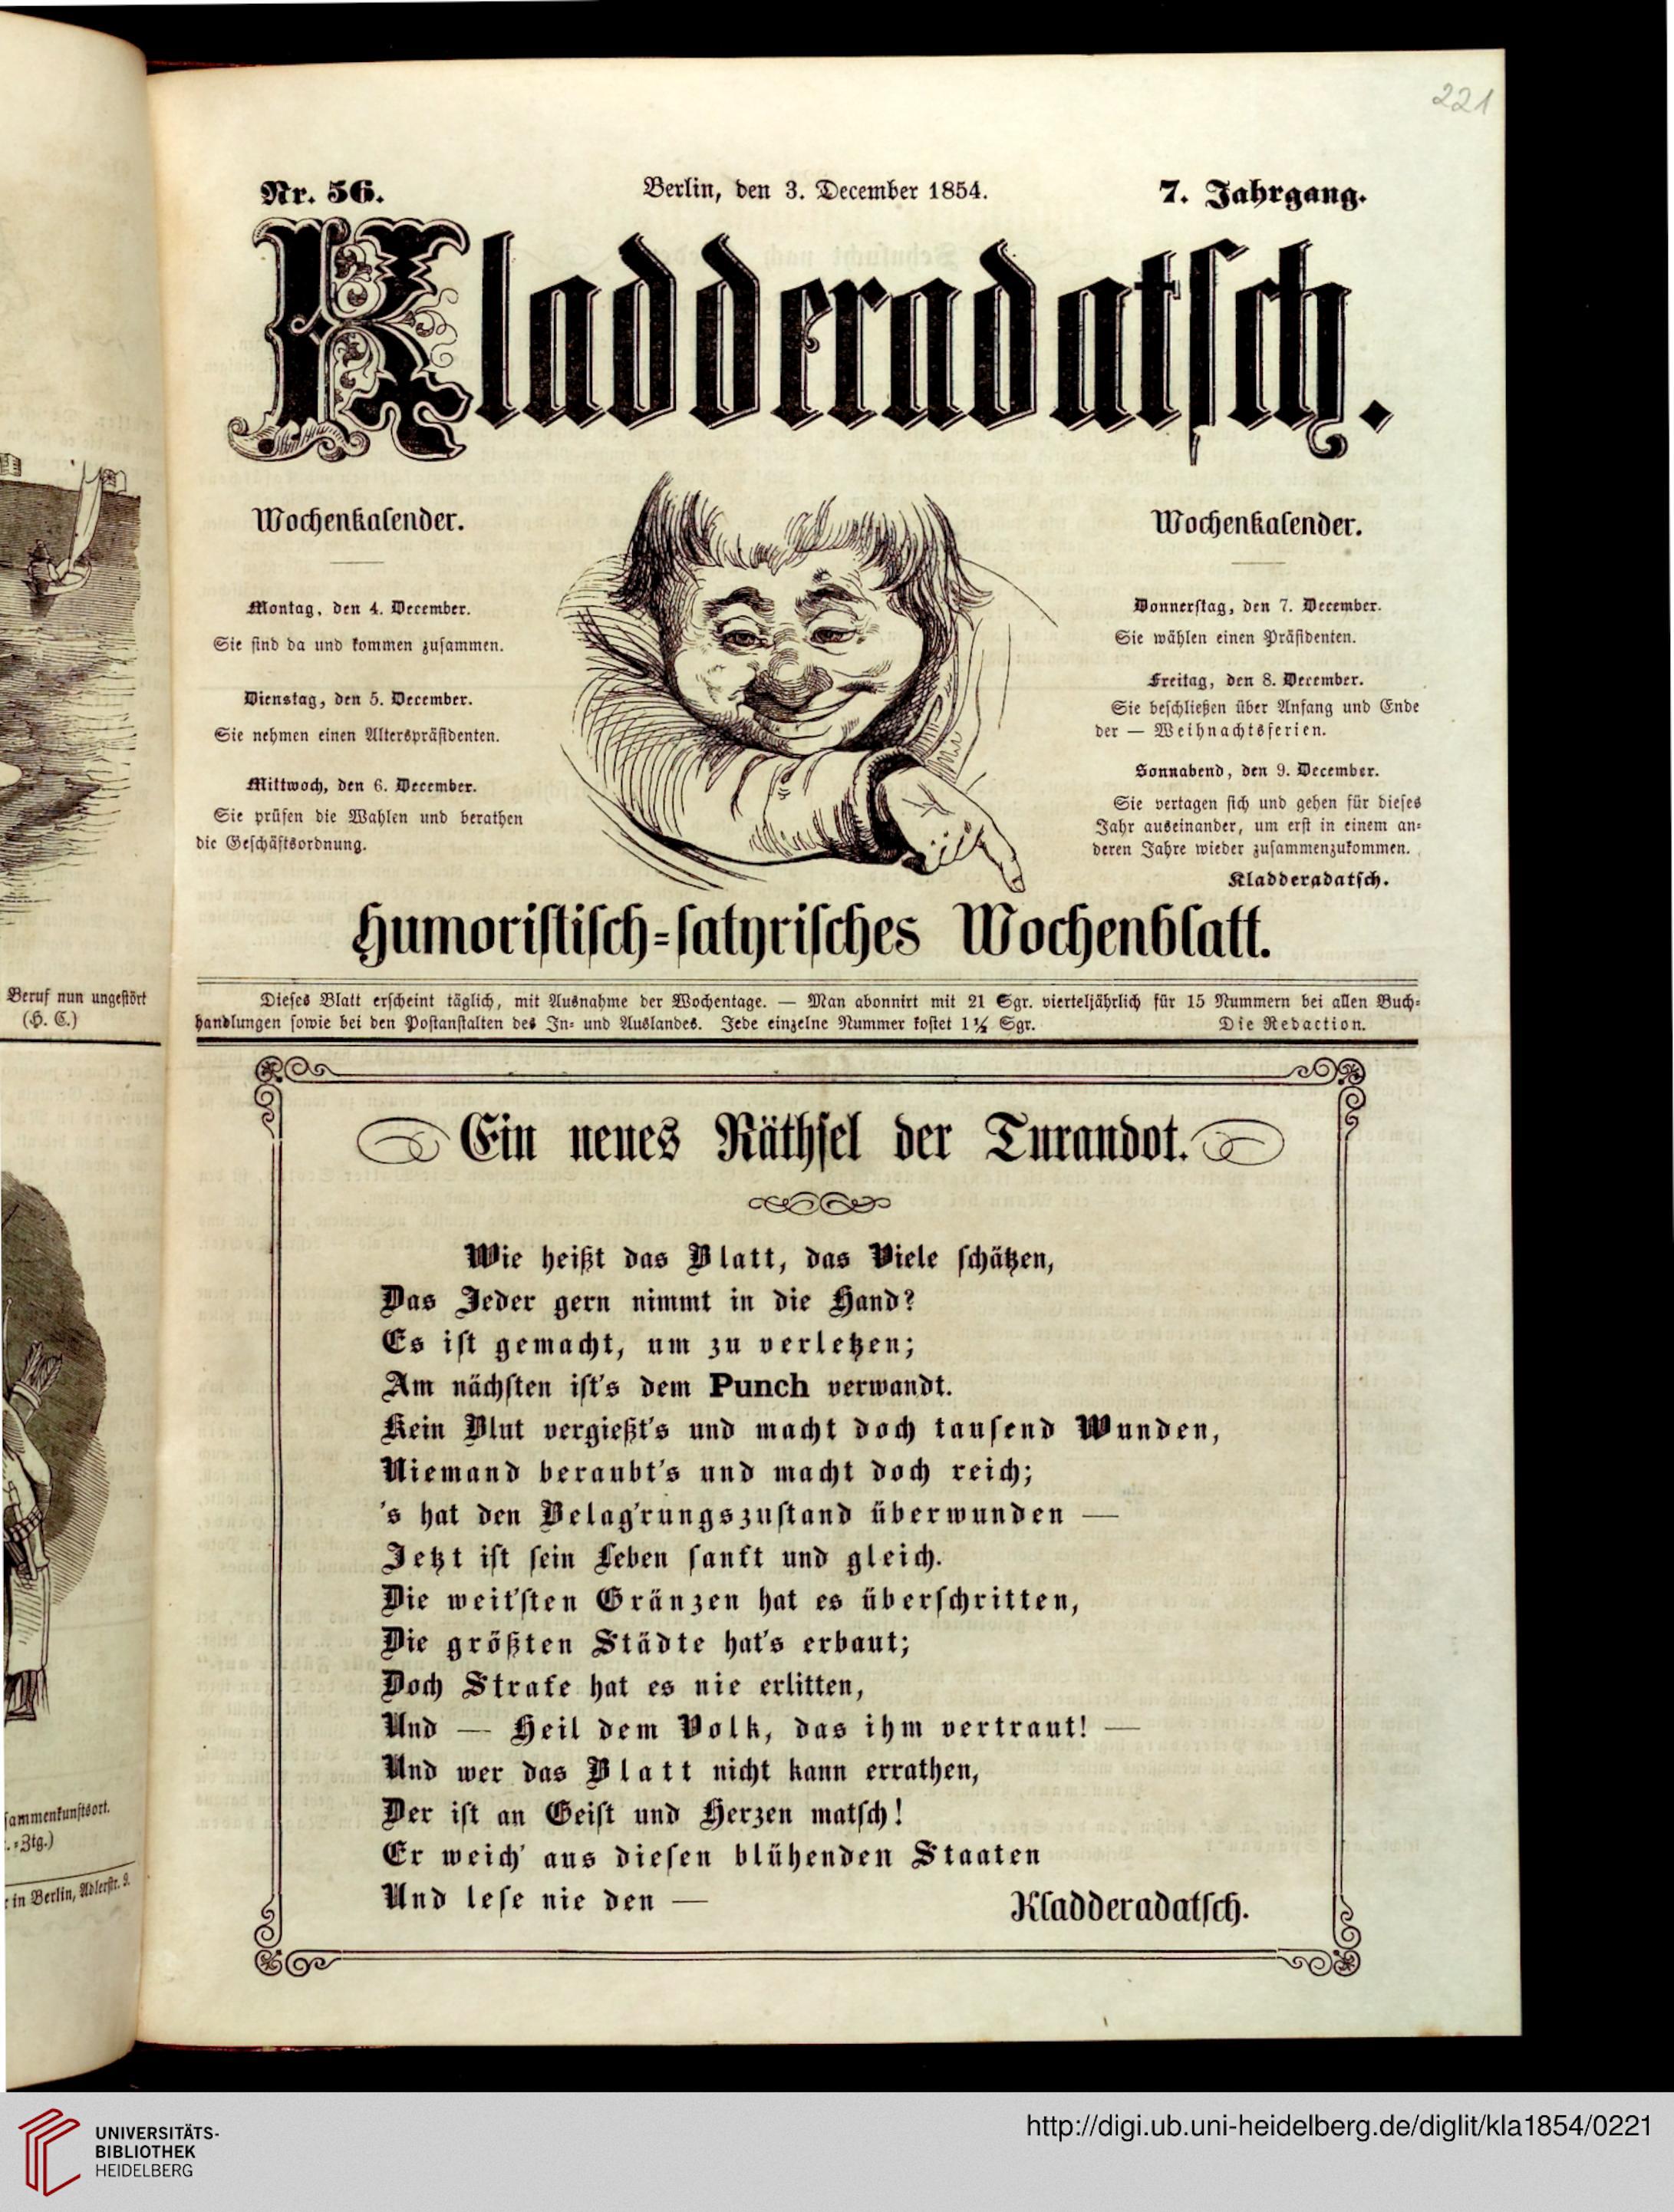 221
Nr. 56.
Berlin, den 3. December 1854.
7. Jahrgang.
Kladderadatsch.
Wochenkalender.
Montag, den 4. December.
Sie sind da und kommen zusammen.
Dienstag, den 5. December.
Sie nehmen einen Alterspräsidenten.
Mittwoch, den 6. December.
Sie prüfen die Wahlen und berathen
die Geschäftsordnung.
Wochenkalender.
Donnerstag, den 7. December.
Sie wählen einen Präsidenten.
Freitag, den 8. December.
Sie beschließen über Anfang und Ende
der — Weihnachtsferien.
Sonnabend, den 9. December.
Sie vertagen sich und gehen für dieses
Jahr auseinander, um erst in einem an-
deren Jahre wieder zusammenzukommen.
Kladderadatsch.
Humoristisch-satyrisches Wochenblatt.
Dieses Blatt erscheint täglich, mit Ausnahme der Wochentage. — Man abonnirt mit 21 Sgr. vierteljährlich für 15 Nummern bei allen Buch-
handlungen sowie bei den Postanstalten des In- und Auslandes. Jede einzelne Nummer kostet 1¾ Sgr. Die Redaction.
Ein neues Räthsel der Turandot.
Wie heißt das Blatt, das Viele schätzen,
Das Jeder gern nimmt in die Hand?
Es ist gemacht, um zu verletzen;
Am nächsten ist's dem Punch verwandt.
Kein Blut vergießt's und macht doch tausend Wunden,
Niemand beraubt's und macht doch reich;
's hat den Belag'rungszustand überwunden —
Jetzt ist sein Leben sanft und gleich.
Die weit'sten Gränzen hat es überschritten,
Die größten Städte hat's erbaut;
Doch Strafe hat es nie erlitten,
Und — Heil dem Volk, das ihm vertraut! —
Und wer das Blatt nicht kann errathen,
Der ist an Geist und Herzen matsch!
Er weich' aus diesen blühenden Staaten
Und lese nie den —
Kladderadatsch.
Beruf nun ungestört
(H. C.)
sammenkunftsort.
.-Ztg.)
in Berlin, Adlerstr. 9.
UNIVERSITÄTS-
BIBLIOTHEK
HEIDELBERG
http://digi.ub.uni-heidelberg.de/diglit/kla1854/0221